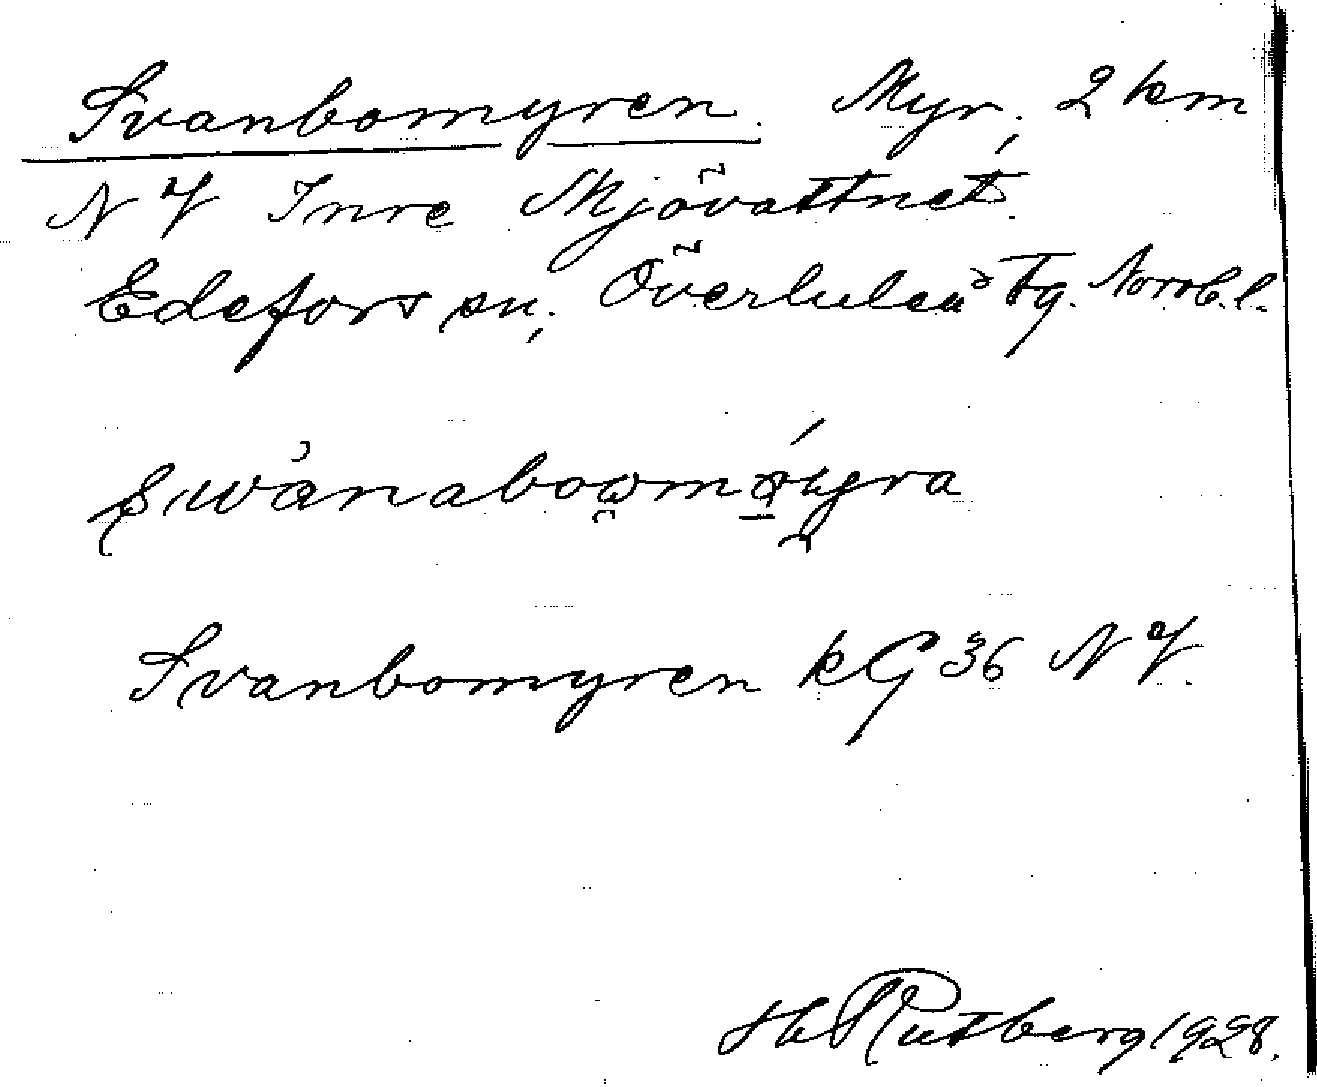 Svanbomyren. Myr, 2 km
NV Inre Skjövattnet.
Edefors sn, Överluleå Tg. Norrb. l.
Svanbomyren kG 36 NV.
Hb Rutberg 1928.